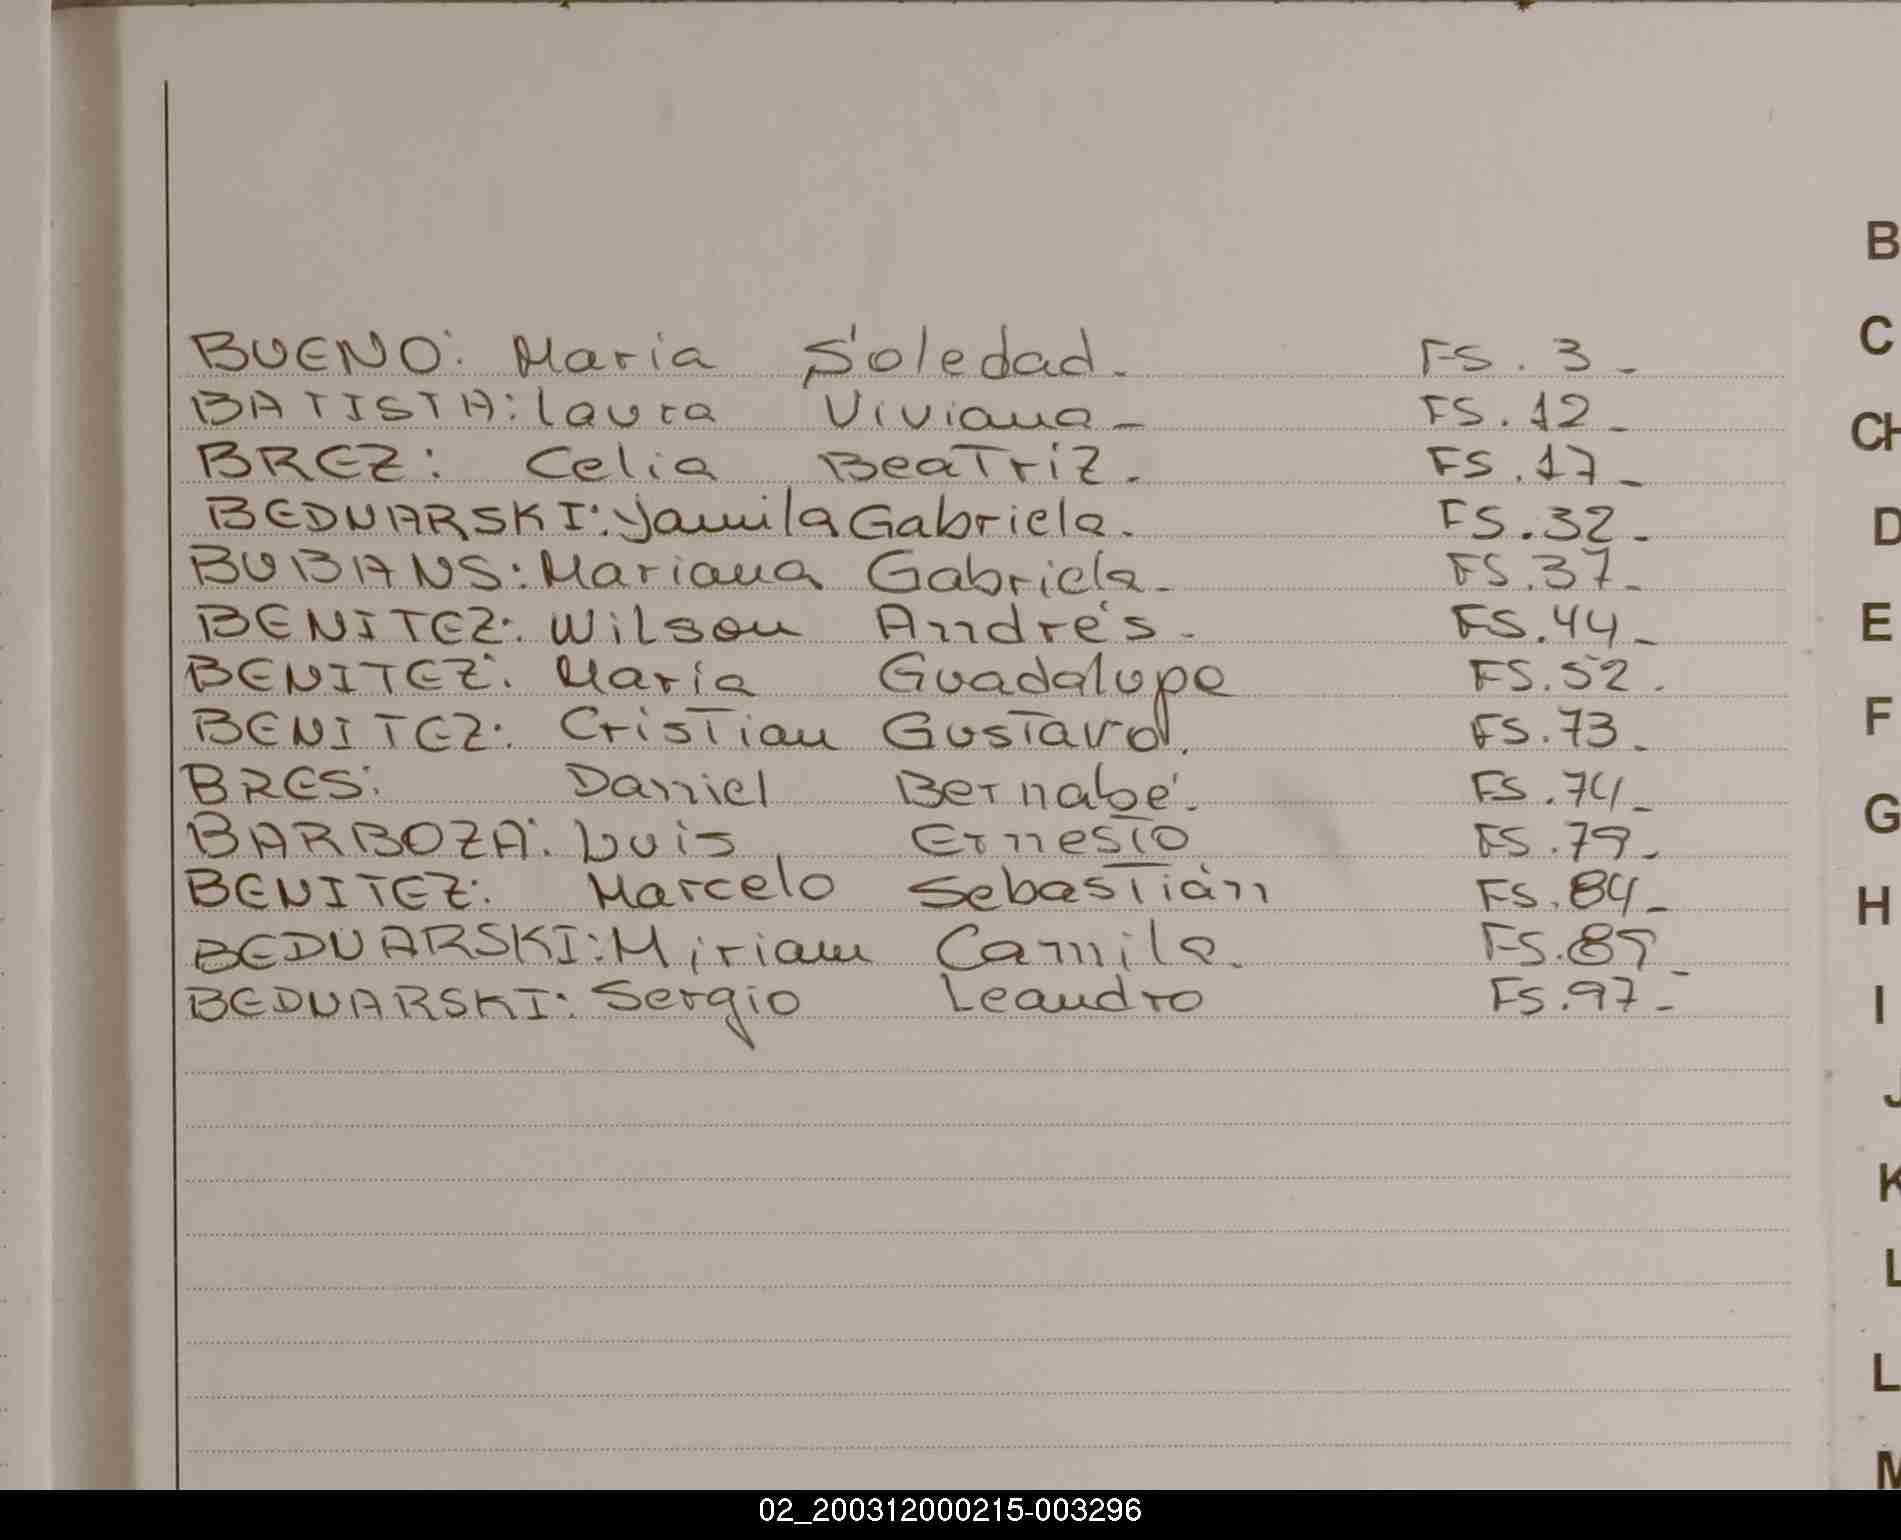 BUENO: Maria Soledad. FS. 3_
BATISTA: Laura Viviana_ FS. 12_
BREZ: Celia Beatriz. FS. 17_
BEDNARSKI: Yamila Gabriela. FS. 32_
BUBANS: Mariana Gabriela_ FS. 37_
BENITEZ: Wilson Andrés. FS. 44_
BENITEZ: Maria Guadalupe FS. 52.
BENITEZ: Cristian Gustavo. FS. 73.
BRES: Daniel Bernabé. FS. 74_
BARBOZA: Luis Ernesto FS. 79_
BENITEZ: Marcelo Sebastián FS. 84_
BEDNARSKI: Miriam Camila. FS. 89_
BEDNARSKI: Sergio Leandro FS. 97_
B
C
CH
D
E
F
G
H
I
J
K
L
L
M
02_200312000215-003296